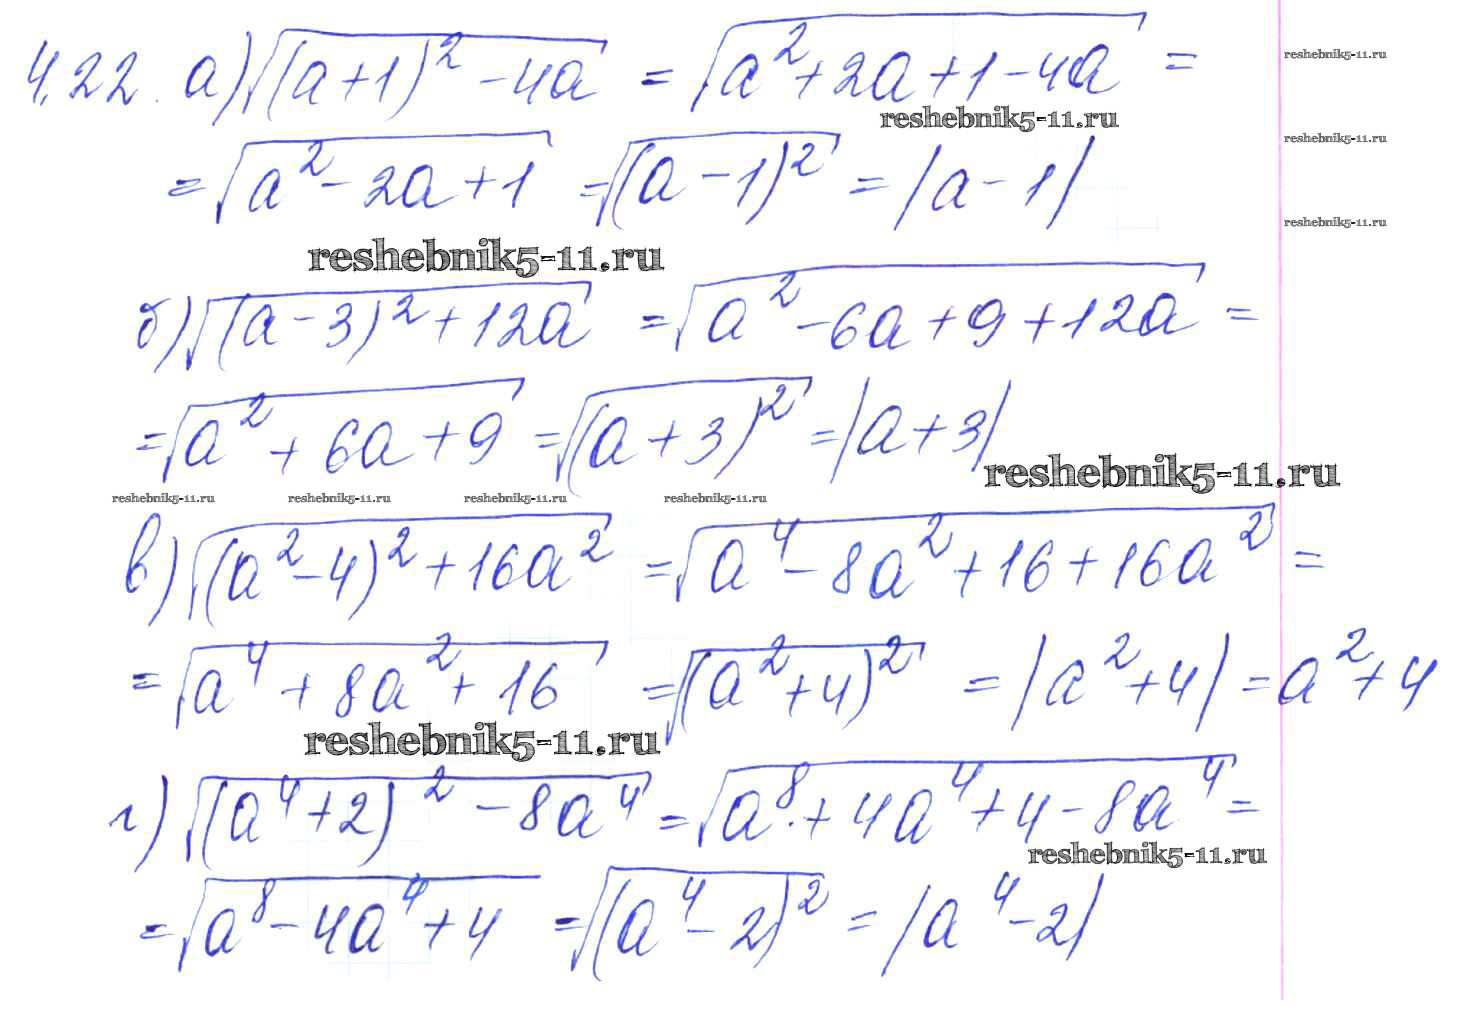 4.22. а) √((a+1)² - 4a) = √(a² + 2a + 1 - 4a) =
reshebnik5-11.ru
reshebnik5-11.ru
reshebnik5-11.ru
= √(a² - 2a + 1) = √((a - 1)²) = |a - 1|
reshebnik5-11.ru
reshebnik5-11.ru
б) √((a - 3)² + 12a) = √(a² - 6a + 9 + 12a) =
= √(a² + 6a + 9) = √((a + 3)²) = |a + 3|
reshebnik5-11.ru
reshebnik5-11.ru reshebnik5-11.ru reshebnik5-11.ru reshebnik5-11.ru
в) √((a² - 4)² + 16a²) = √(a⁴ - 8a² + 16 + 16a²) =
= √(a⁴ + 8a² + 16) = √((a² + 4)²) = |a² + 4| = a² + 4
reshebnik5-11.ru
г) √((a⁴ + 2)² - 8a⁴) = √(a⁸ + 4a⁴ + 4 - 8a⁴) =
reshebnik5-11.ru
= √(a⁸ - 4a⁴ + 4) = √((a⁴ - 2)²) = |a⁴ - 2|